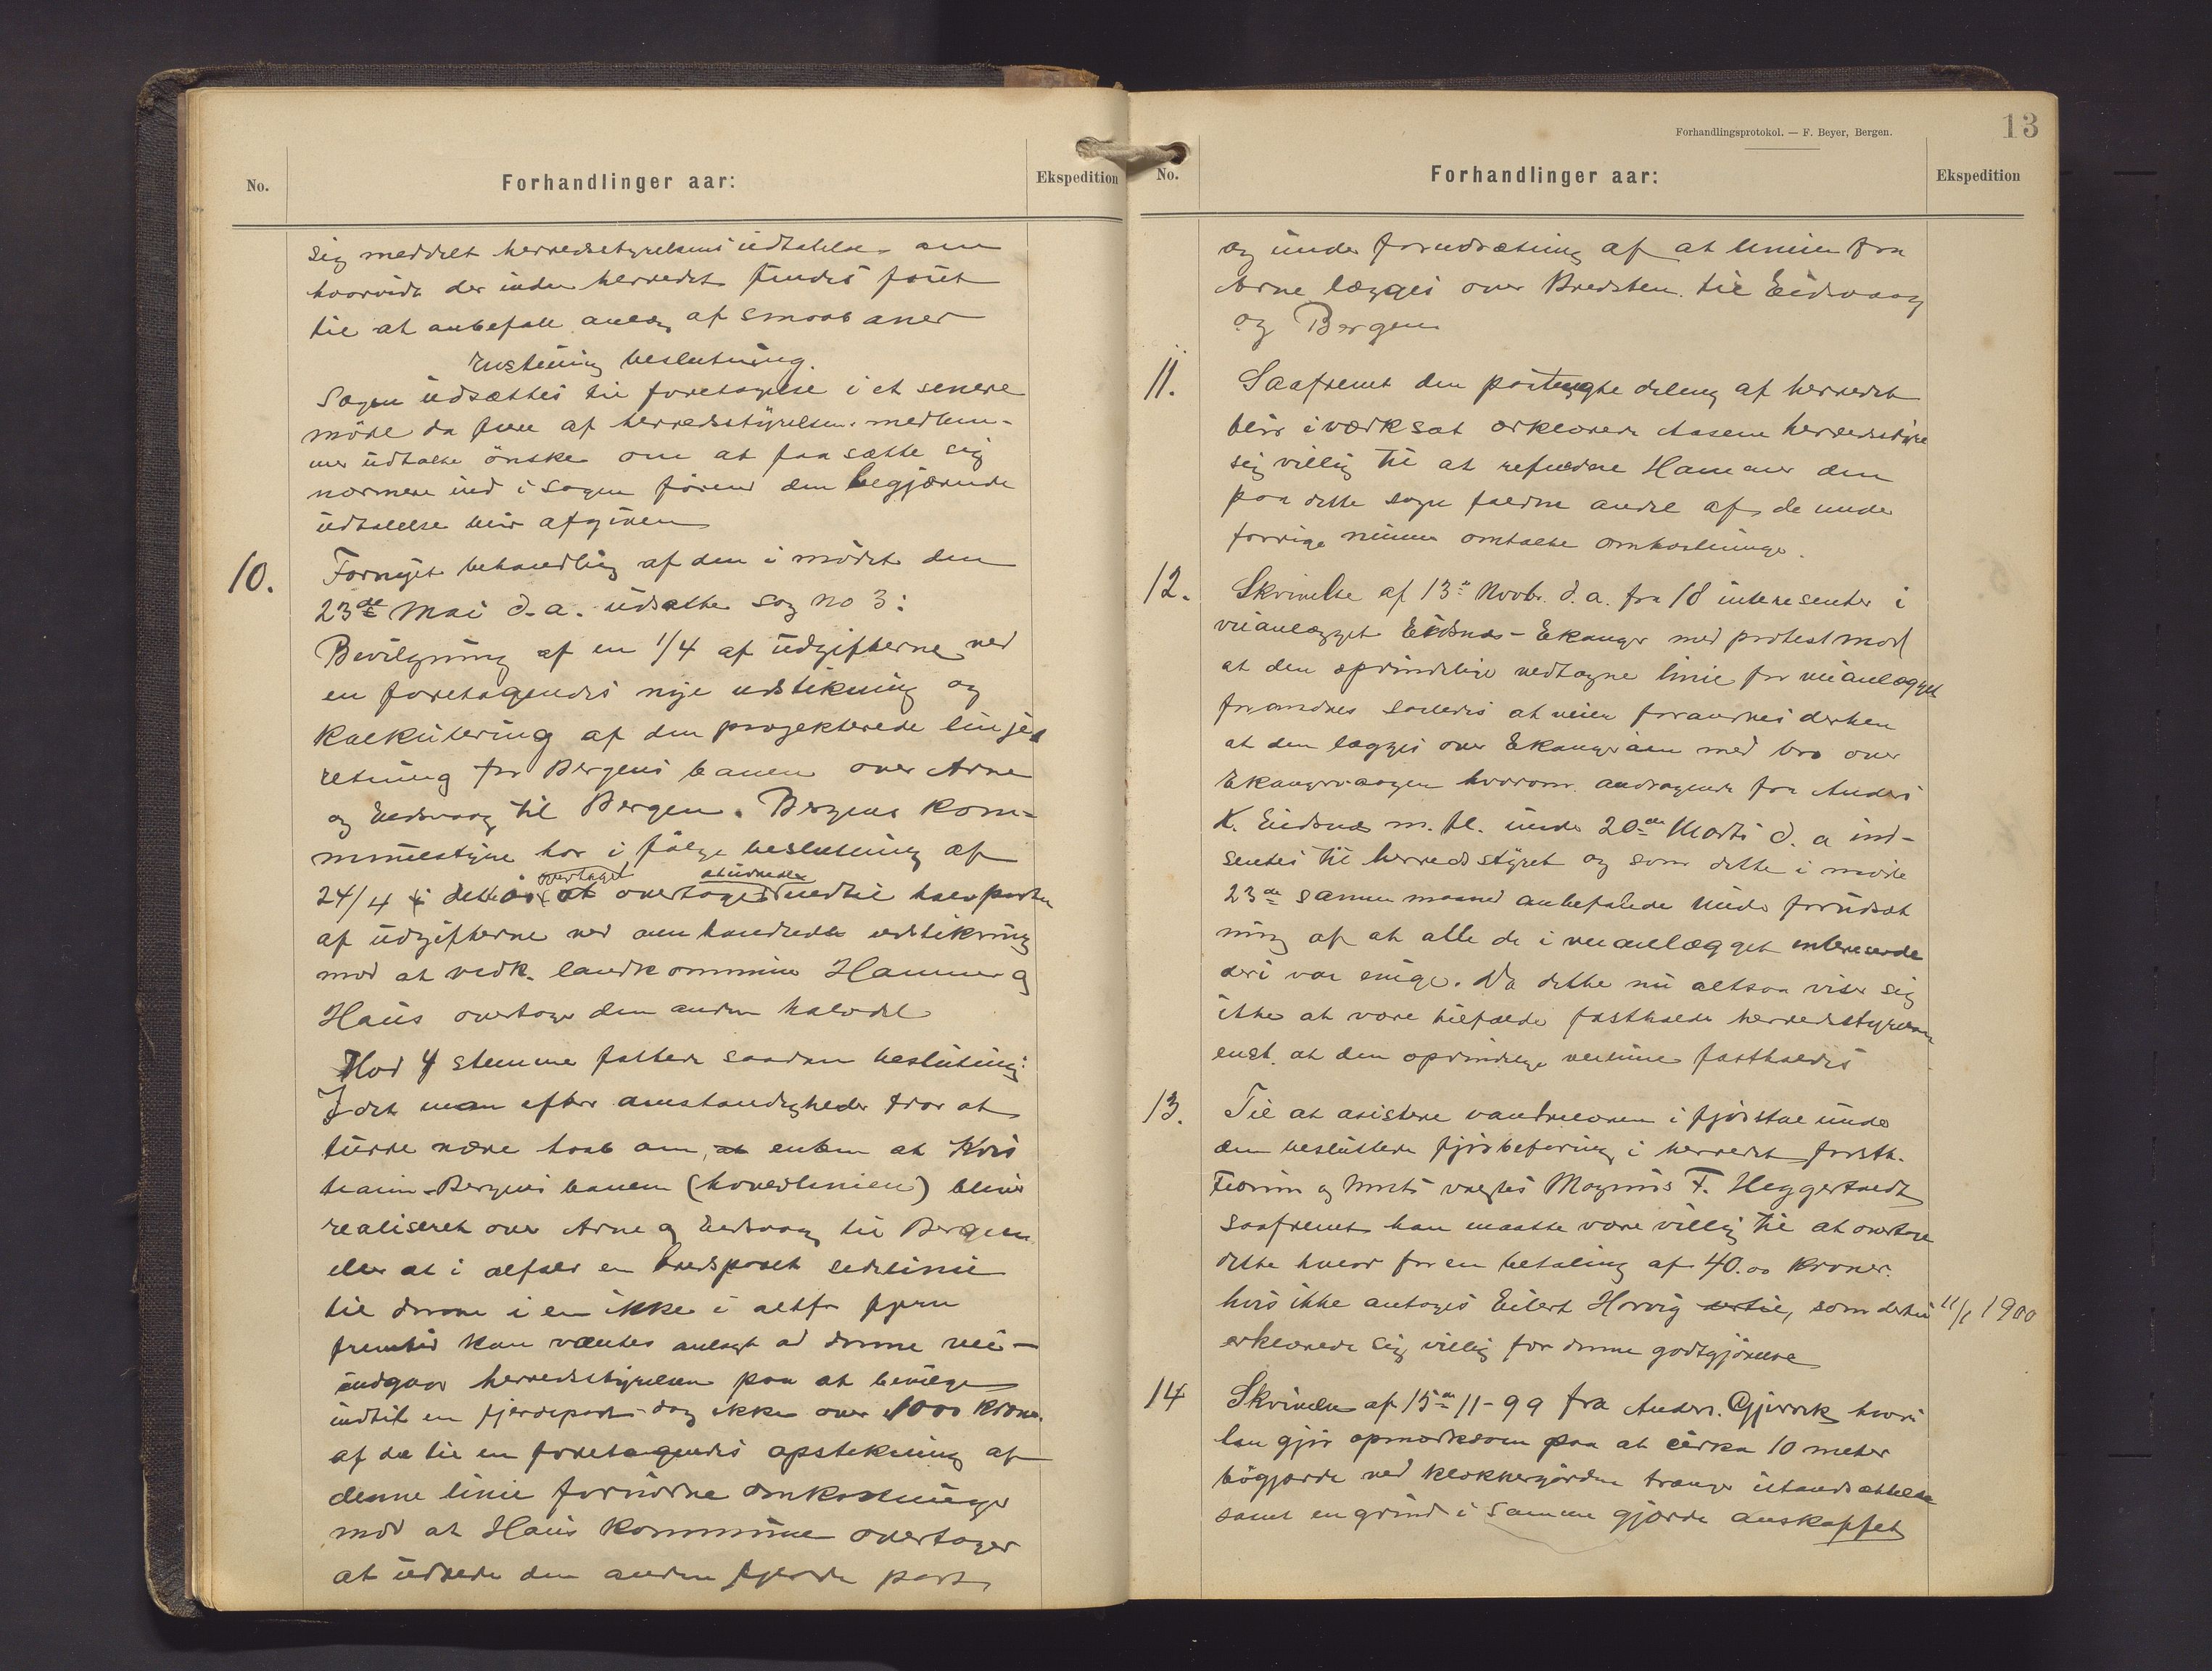 No.
Forhandlinger aar:
Ekspedition
sig meddelt herredsstyrelsens udtalelse om
hvorvidt der inden herredet findes
til at anbefale anlæg af smaabaner
beslutning.
Sagen udsættes til foretagelse i et senere
møde da flere af herredsstyrelsens medlem-
mer udtalte ønske om at faa sætte sig
nærmere ind i sagen førend den begjærende
udtalelse blir afgiven
10.
Fornyet behandling af den i mødet den
23de Mai d.a. udsatte sag no 3:
Bevilgning af en 1/4 af udgifterne ved
en foretagendes nye udstikning og
kalkulering af den projekterede linje
retning for Bergens banen over Arne
og Eidsvaag til Bergen. Bergens kom-
munestyre har i følge beslutning af
24/4 i dette aar overtaget at udrede indtil halvparten
af udgifterne ved omhandlede udstikning
mod at vedk. landkommuner Hammer og
Haus overtager den anden halvdel
Mod 4 stemmer fattedes saadan beslutning:
Idet man efter omstændigheder tror at
turde nære haab om, enten at Kris
tiania-Bergens banen (hovedlinien) bliver
realiseret over Arne og Eidsvaag til Bergen
eller at i alfald en bredsporet sidelinie
til denne i en ikke i altfor fjern
fremtid kan væntes anlagt ad denne vei -
indgaar herredsstyrelsen paa at bevilge
indtil en fjerdepart dog ikke over 1000 kroner
af de til en foretagendes opstikning af
denne linie fornødne omkostninger
mod at Haus kommune overtager
at udrede den anden fjerde part
Forhandlingsprotokol. — F. Beyer, Bergen.
13
No.
Forhandlinger aar:
Ekspedition
og under forudsætning af at linien fra
Arne lægges over Bredsten til Eidsvaag
og Bergen
11.
Saafremt den paatængte deling af herredet
blir iværksat erklærede Aasene herredsstyre
sig villig til at refundere Hammer den
paa dette sogn faldne andel af de under
forrige nummer omtalte omkostninger.
12.
Skrivelse af 13de Novbr. d.a. fra 18 interesenter i
veianlægget Eidsnes - Ekanger med protest mod
at den oprindelige vedtagne linie for veianlægget
forandres saaledes at veien forandres derhen
at den lægges over Ekanger aaen med bro over
Ekangervaagen hvorom andragende fra Anders
K. Eidsnes m. fl. under 20de Marts d. a ind-
sentes til herredsstyret og som dette i møde
23de samme maaned anbefalede under forudsæt
ning af at alle de i veianlægget interesserede
deri var enige. Da dette nu altsaa viser sig
ikke at være tilfælde fastholder herredsstyrelsen
enst. at den oprindelige veilinie fastholdes
13.
Til at asistere i fjøsstal under
den besluttede fjøsbefaring i herredet forsth.
og Marts valgtes Magnus F. Heggertveit
saafremt han maatte være villig til at overtage
dette hverv for en betaling af 40.00 kroner.
hvis ikke antages Eilert Horvig dertil, som dertil
11/1 1900
erklærede sig villig for denne godtgjørelse
14
Skrivelse af 15de 11-99 fra Anders Gjervik hvori
han gjør opmærksom paa at cirka 10 meter
bøgjærde ved klokkergården trænger istandsættelse
samt en grind i samme gjærde anskaffet